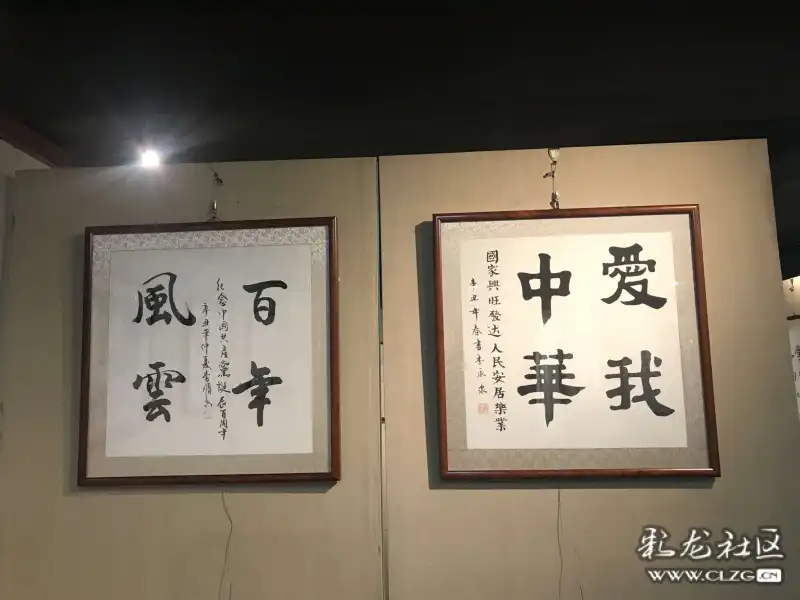 百年
纪念中國共產黨誕辰百周年
辛丑年仲夏李
風雲
愛我
中華
國家興旺發达人民安居樂業
辛丑年春書李永
彩龙社区
WWW.CLZG.CN